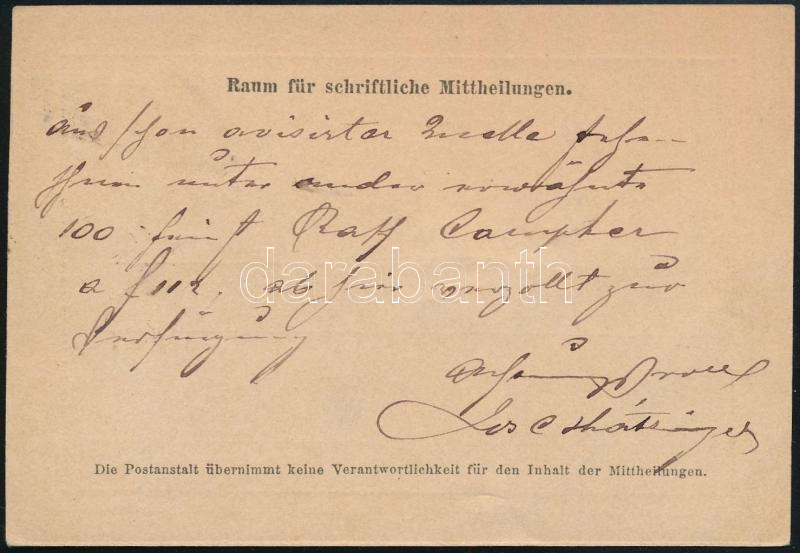 Raum für schriftliche Mittheilungen.
aus schon avisirter Quelle stehen
Ihnen unter andern erwähnte
100 Raff Campher
a f 112. ab hier verzollt zur
Verfügung
Achtungsvoll
Jos C
Die Postanstalt übernimmt keine Verantwortlichkeit für den Inhalt der Mittheilungen.
darabanth
.com